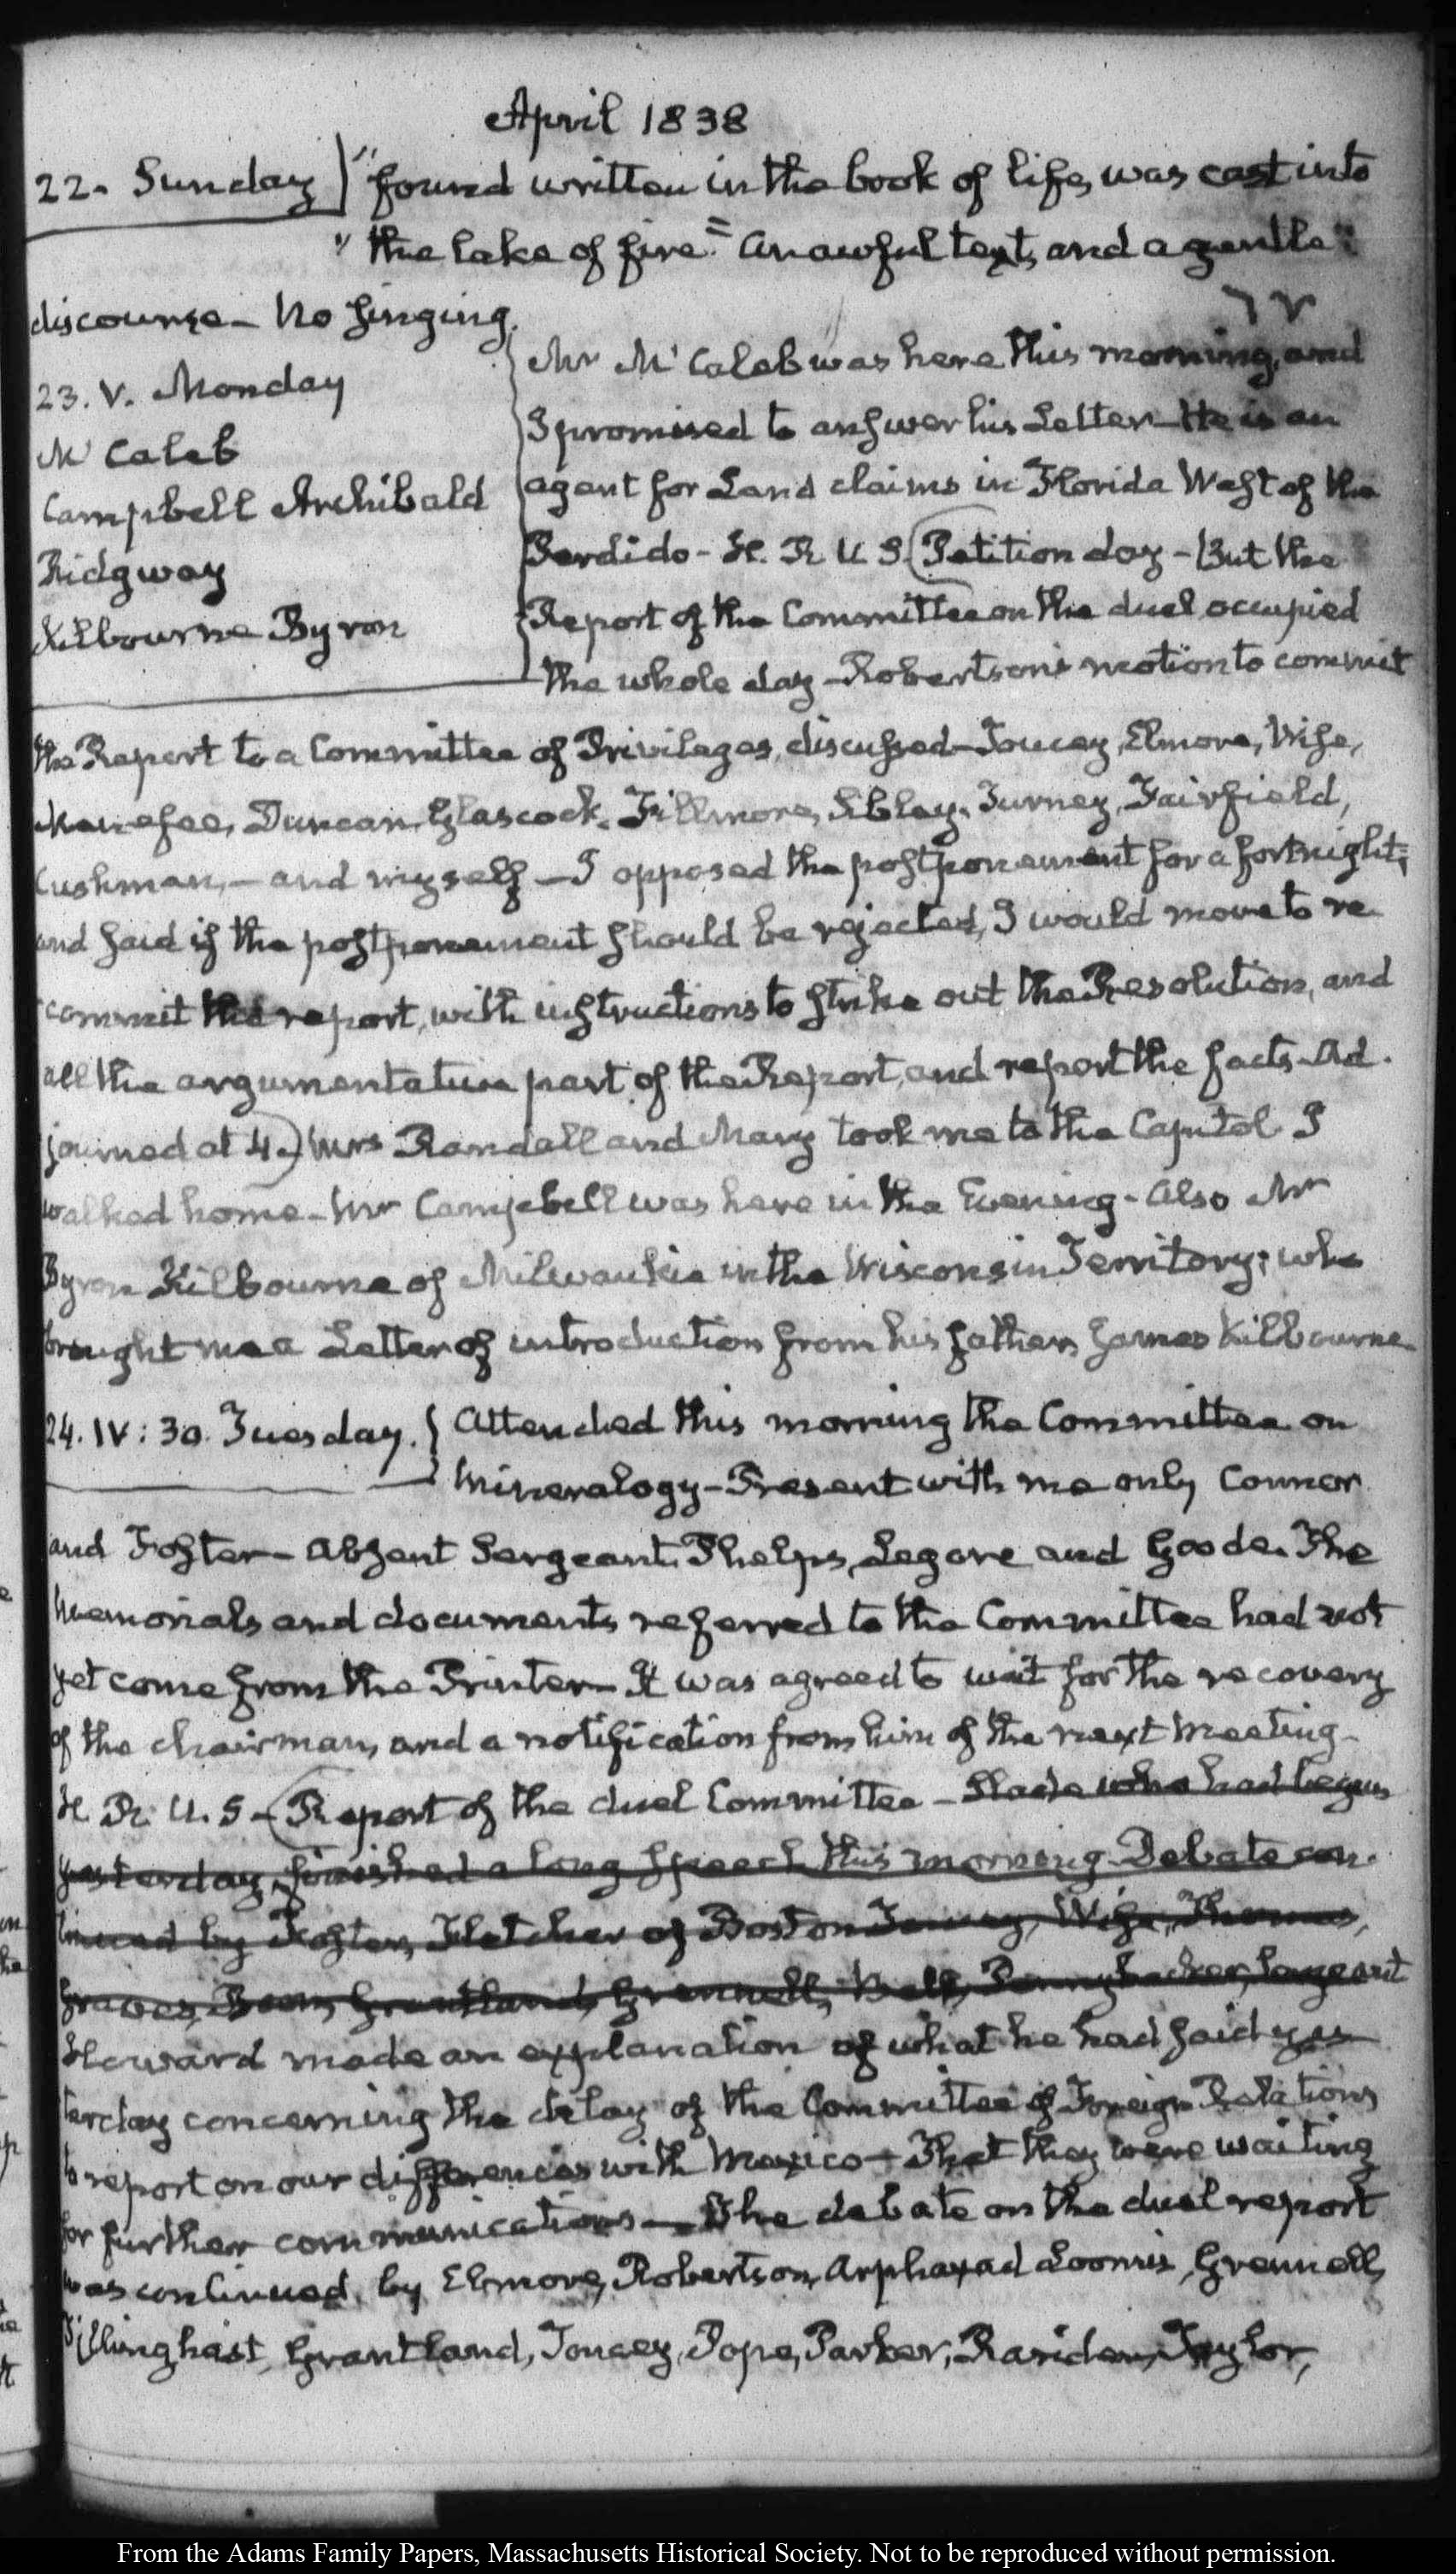 April 1838
22. Sunday
"found written in the book of life, was cast into
"the lake of fire." An awful text, and a gentle
discourse - No singing.
23. V. Monday
Mr McCaleb was here this morning, and
McCaleb
I promised to answer his Letter - He is an
Campbell Archibald
agent for Land claims in Florida West of the
Ridgway
Perdido - H. R. U. S. (Petition day - But the
Kilbourne Byron
Report of the Committee on the duel occupied
the whole day - Robertson's motion to commit
the Report to a Committee of Privileges, discussed - Toucey, Elmore, Wise,
Menefee, Duncan, Glascock, Fillmore, Sibley, Turney, Fairfield,
Cushman, - and myself - I opposed the postponement for a fortnight;
and said if the postponement should be rejected, I would move to re
commit the report, with instructions to strike out the Resolution, and
all the argumentative part of the Report, and report the facts - Ad.
journed at 4.) Mrs Randall and Mary took me to the Capitol I
walked home - Mr Campbell was here in the Evening - Also Mr
Byron Kilbourne of Milwaukie in the Wisconsin Territory; who
brought me a Letter of introduction from his father, James Kilbourne
24. IV: 30. Tuesday.
Attended this morning the Committee on
Mineralogy - Present with me only Connor
and Foster - Absent Sergeant, Phelps, Legare and Goode. The
memorials and documents referred to the Committee had not
yet come from the Printer - It was agreed to wait for the recovery
of the chairman, and a notification from him of the next meeting -
H. R. U. S - (Report of the duel Committee - Slade who had begun
yesterday, finished a long speech this morning - Debate con.
tinued by Foster, Fletcher of Boston Toucey, Wise, Thomas,
Graves, Boon, Grantland, Grennell, Bell, Pennybacker,
Howard made an explanation of what he had said yes
terday concerning the delay of the Committee of Foreign Relations
to report on our differences with Mexico - That they were waiting
for further communications - The debate on the duel report
was continued, by Elmore, Robertson, Arphaxad Loomis, Grennell,
Tillinghast, Grantland, Toucey, Pope, Parker, Rariden, Taylor,
From the Adams Family Papers, Massachusetts Historical Society. Not to be reproduced without permission.